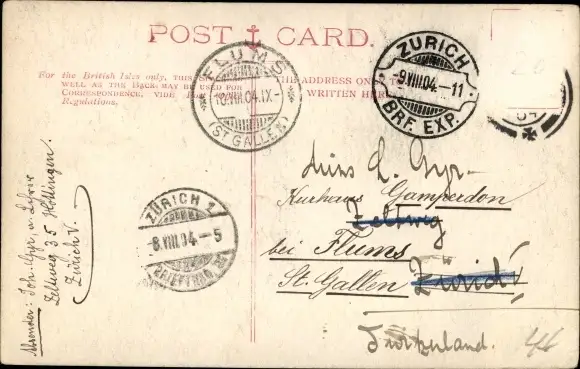 POST CARD.
For the British Isles only, THIS
WELL AS THE BACK MAY BE USED FOR
CORRESPONDENCE, VIDE
Regulations.
THE ADDRESS ONLY TO
WRITTEN HERE
FLUMS
10.VIII.04.IX
(ST GALLEN)
ZÜRICH
-9.VIII.04.-11
BRF. EXP.
ZÜRICH 1
8.VIII.04.-5
Miss L. Gyr
Kurhaus Gamperdon
Zeltweg
bei Flums
St. Gallen Zürich
Switzerland.
44
Absender: Joh. Gyr,
Zeltweg 35 Hottingen.
Zürich V.